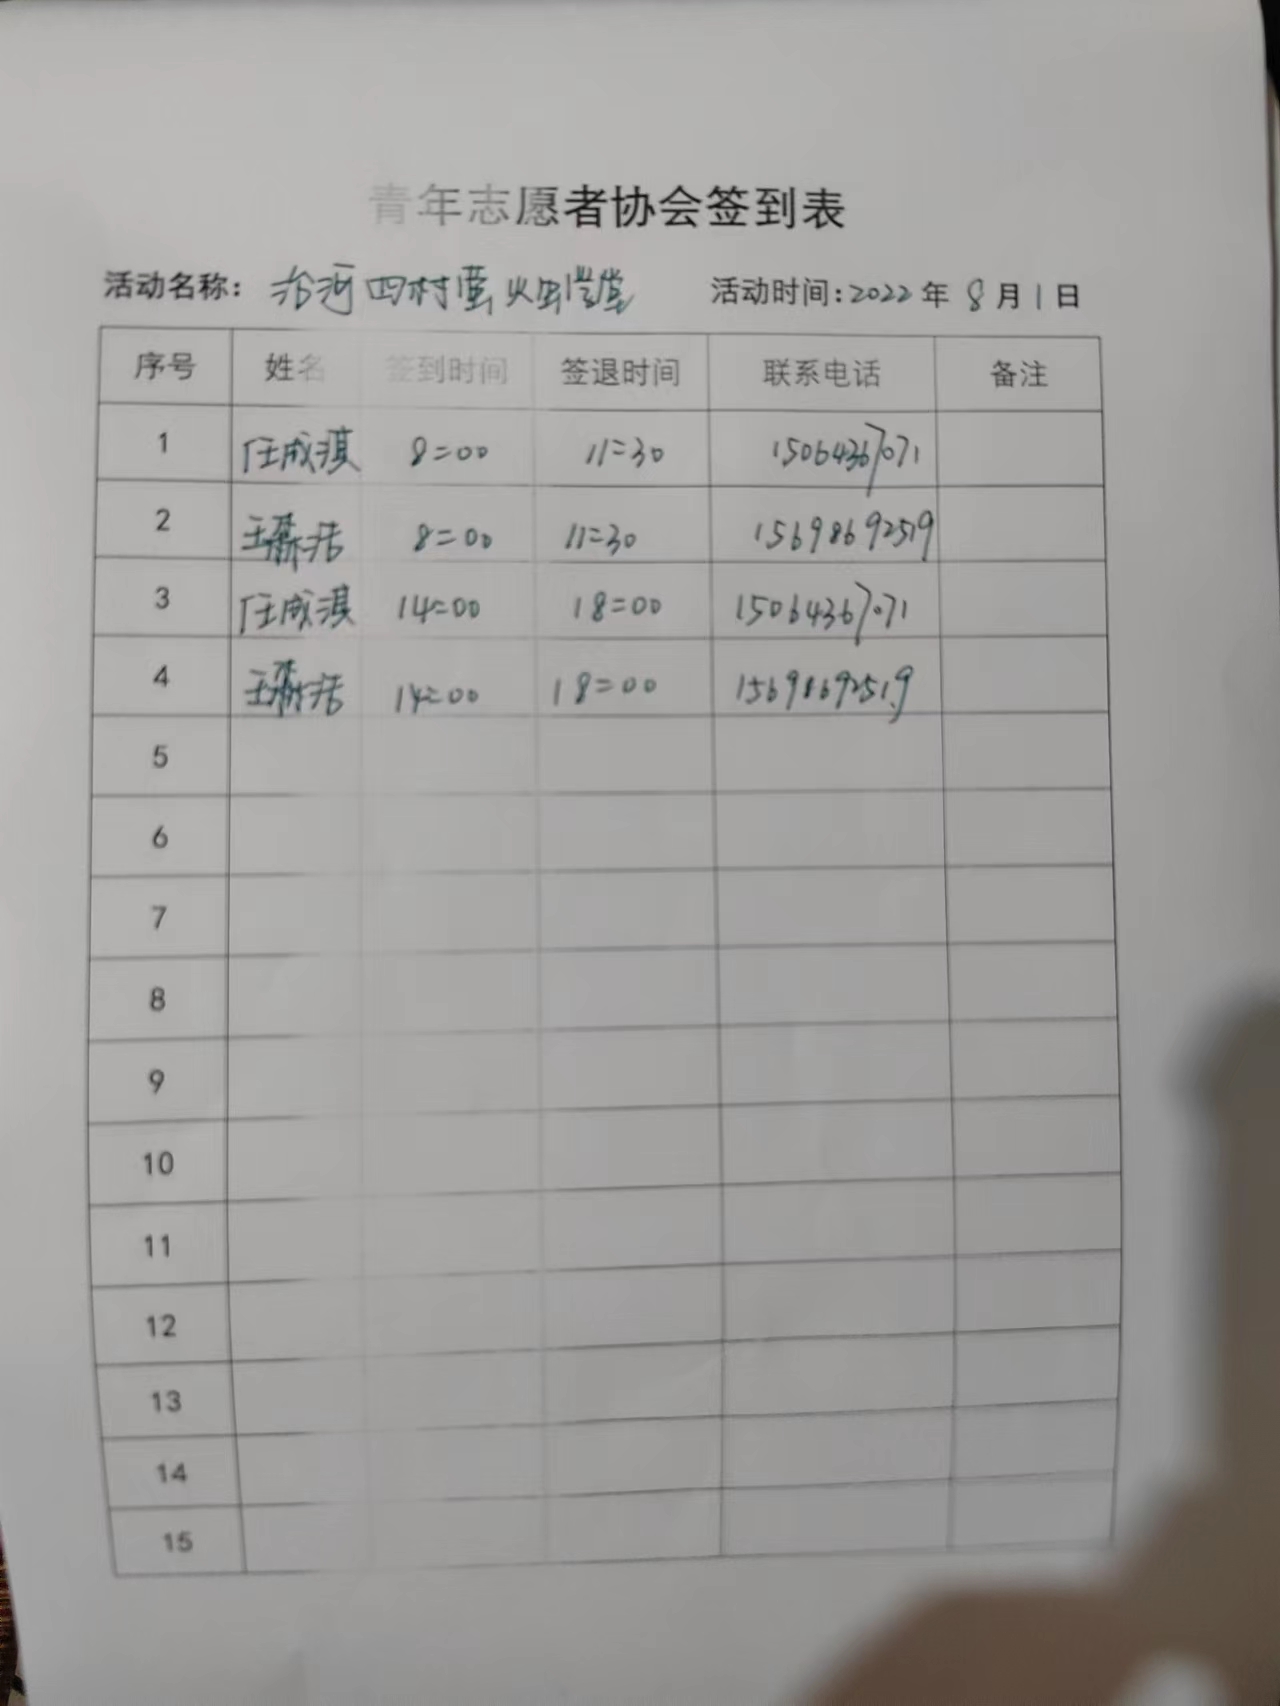 青年志愿者协会签到表
活动名称：治河四村萤火虫学堂 活动时间：2022年8月1日
序号 姓名 签到时间 签退时间 联系电话 备注
1 任成淇 8=00 11=30 15064367071
2 王 浩 8=00 11=30 15698692519
3 任成淇 14=00 18=00 15064367071
4 王 浩 14=00 18=00 15698692519
5
6
7
8
9
10
11
12
13
14
15